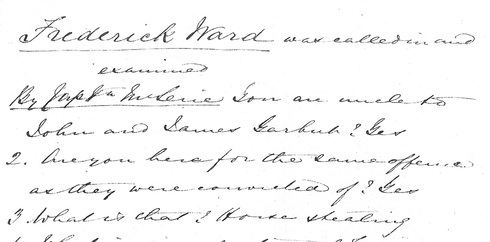 Frederick Ward was called in and
examined
By Capt McLerie You are uncle to
John and James Garbutt? Yes
2. Are you here for the same offence
as they were convicted of? Yes
3. What is that? Horse stealing